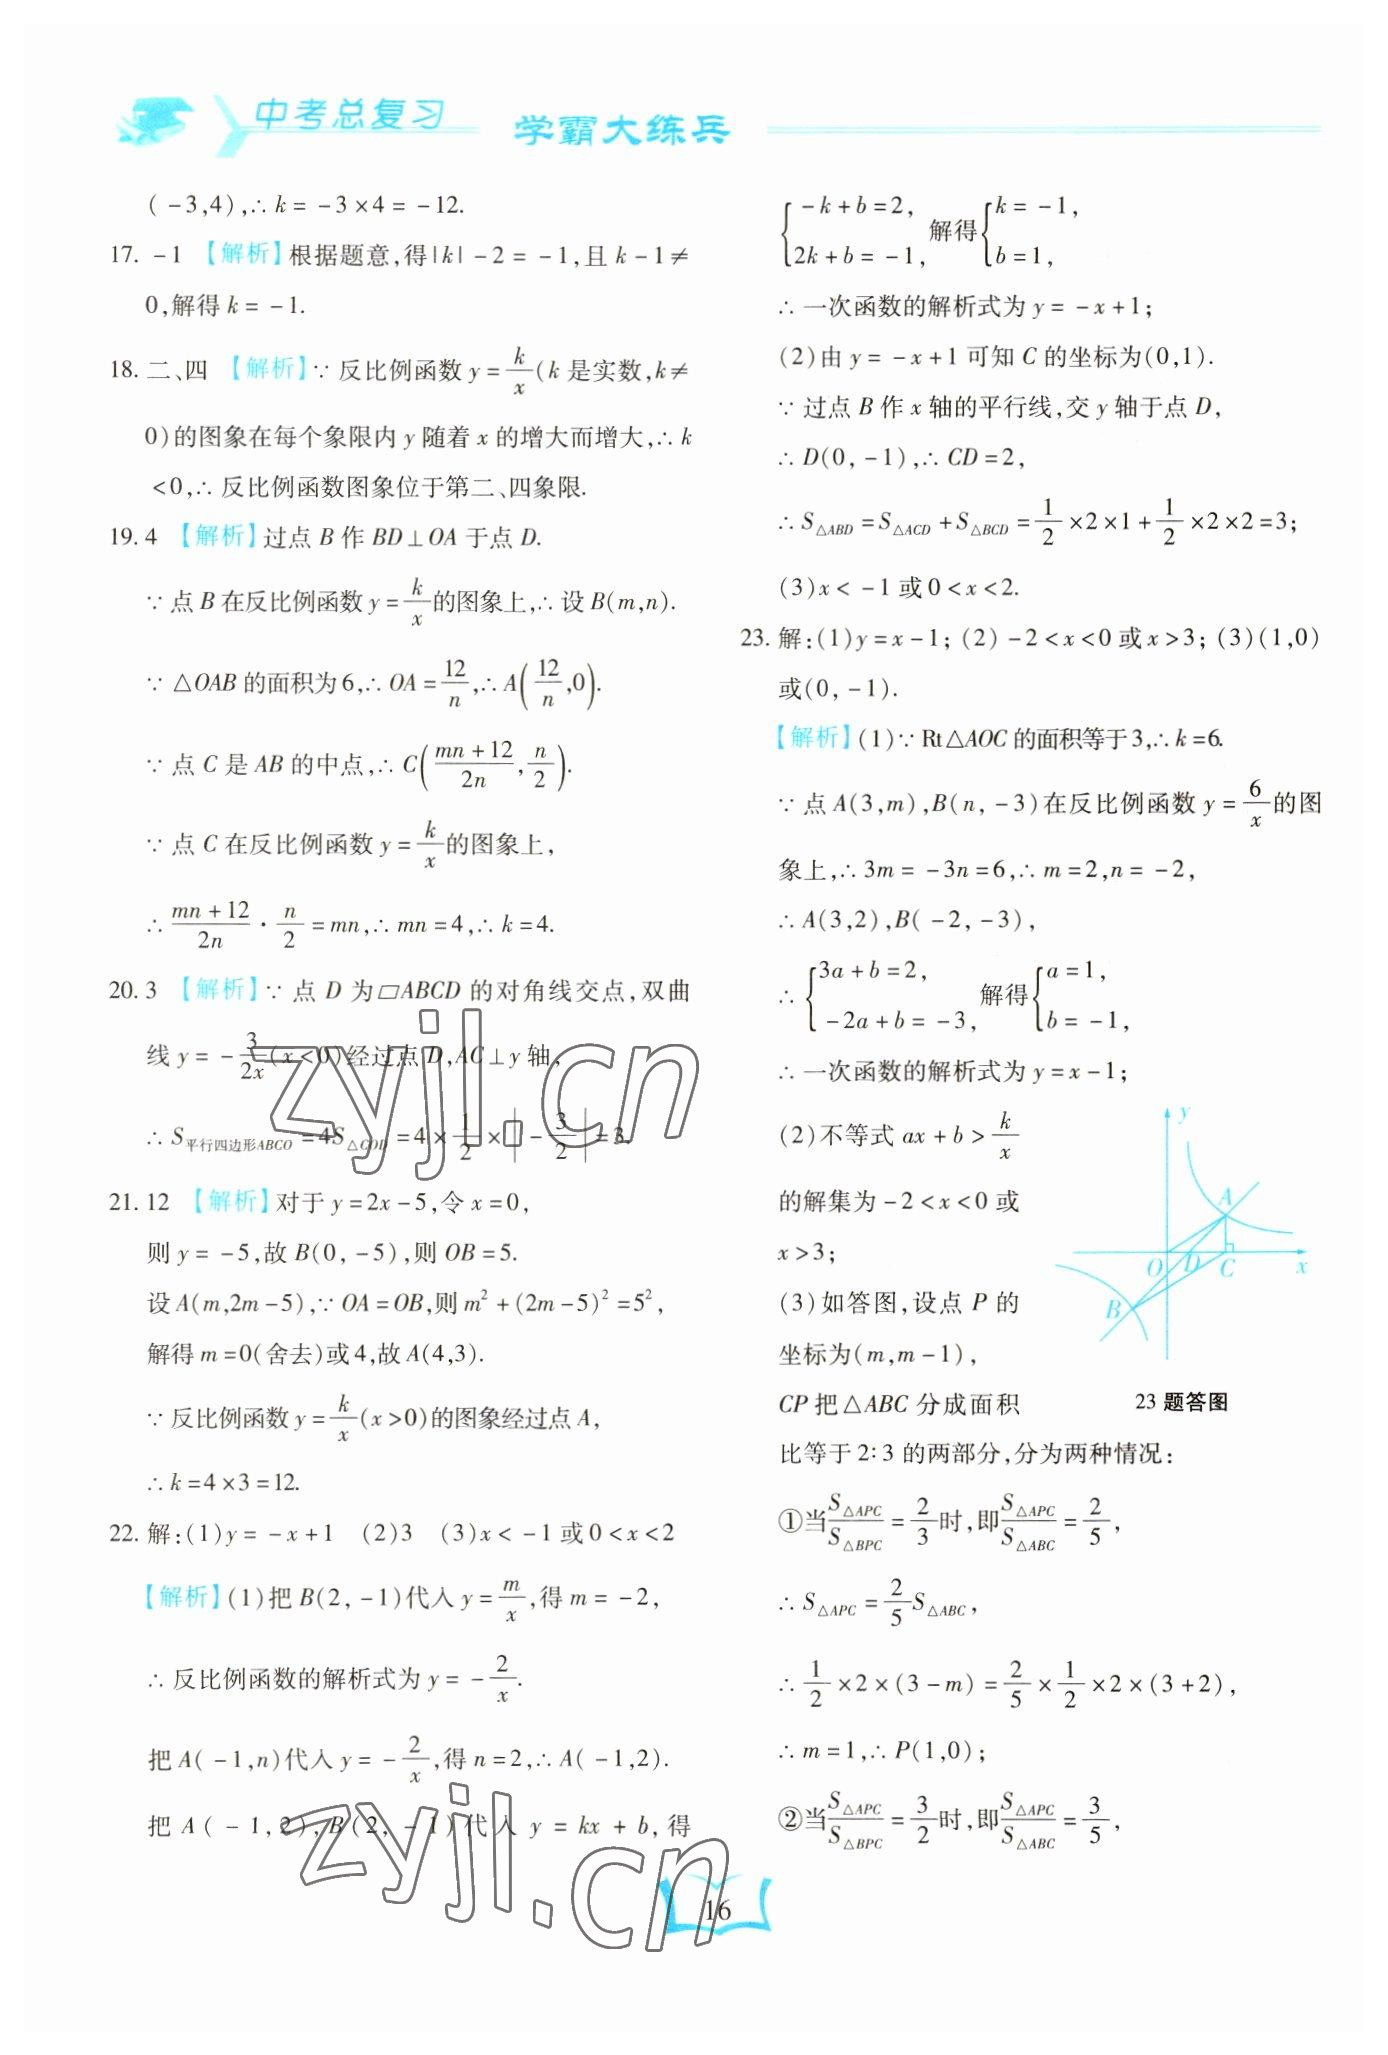 中考总复习 学霸大练兵
(-3,4),∴k=-3×4=-12.
17. -1 【解析】根据题意,得|k|-2=-1,且k-1≠
0,解得k=-1.
18. 二、四 【解析】∵反比例函数y=k/x(k是实数,k≠
0)的图象在每个象限内y随着x的增大而增大,∴k
<0,∴反比例函数图象位于第二、四象限.
19. 4 【解析】过点B作BD⊥OA于点D.
∵点B在反比例函数y=k/x的图象上,∴设B(m,n).
∵△OAB的面积为6,∴OA=12/n,∴A(12/n,0).
∵点C是AB的中点,∴C((mn+12)/2n,n/2).
∵点C在反比例函数y=k/x的图象上,
∴(mn+12)/2n·n/2=mn,∴mn=4,∴k=4.
20. 3 【解析】∵点D为▱ABCD的对角线交点,双曲
线y=-3/2x(x<0)经过点D,AC⊥y轴,
∴S平行四边形ABCO=4S△COD=4×1/2×|-3/2|=3.
21. 12 【解析】对于y=2x-5,令x=0,
则y=-5,故B(0,-5),则OB=5.
设A(m,2m-5),∵OA=OB,则m²+(2m-5)²=5²,
解得m=0(舍去)或4,故A(4,3).
∵反比例函数y=k/x(x>0)的图象经过点A,
∴k=4×3=12.
22. 解:(1)y=-x+1 (2)3 (3)x<-1或0<x<2
【解析】(1)把B(2,-1)代入y=m/x,得m=-2,
∴反比例函数的解析式为y=-2/x.
把A(-1,n)代入y=-2/x,得n=2,∴A(-1,2).
把A(-1,2),B(2,-1)代入y=kx+b,得
{-k+b=2, 解得{k=-1,
2k+b=-1, b=1,
∴一次函数的解析式为y=-x+1;
(2)由y=-x+1可知C的坐标为(0,1).
∵过点B作x轴的平行线,交y轴于点D,
∴D(0,-1),∴CD=2,
∴S△ABD=S△ACD+S△BCD=1/2×2×1+1/2×2×2=3;
(3)x<-1或0<x<2.
23. 解:(1)y=x-1;(2)-2<x<0或x>3;(3)(1,0)
或(0,-1).
【解析】(1)∵Rt△AOC的面积等于3,∴k=6.
∵点A(3,m),B(n,-3)在反比例函数y=6/x的图
象上,∴3m=-3n=6,∴m=2,n=-2,
∴A(3,2),B(-2,-3),
∴{3a+b=2, 解得{a=1,
-2a+b=-3, b=-1,
∴一次函数的解析式为y=x-1;
(2)不等式ax+b>k/x
的解集为-2<x<0或
x>3;
(3)如答图,设点P的
坐标为(m,m-1),
CP把△ABC分成面积
y
A
O D C x
B
23题答图
比等于2:3的两部分,分为两种情况:
①当S△APC/S△BPC=2/3时,即S△APC/S△ABC=2/5,
∴S△APC=2/5S△ABC,
∴1/2×2×(3-m)=2/5×1/2×2×(3+2),
∴m=1,∴P(1,0);
②当S△APC/S△BPC=3/2时,即S△APC/S△ABC=3/5,
zyjl.cn
zyjl.cn
16